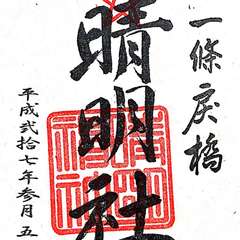 一條戻橋
晴明社
平成弐拾七年参月五
晴明神社